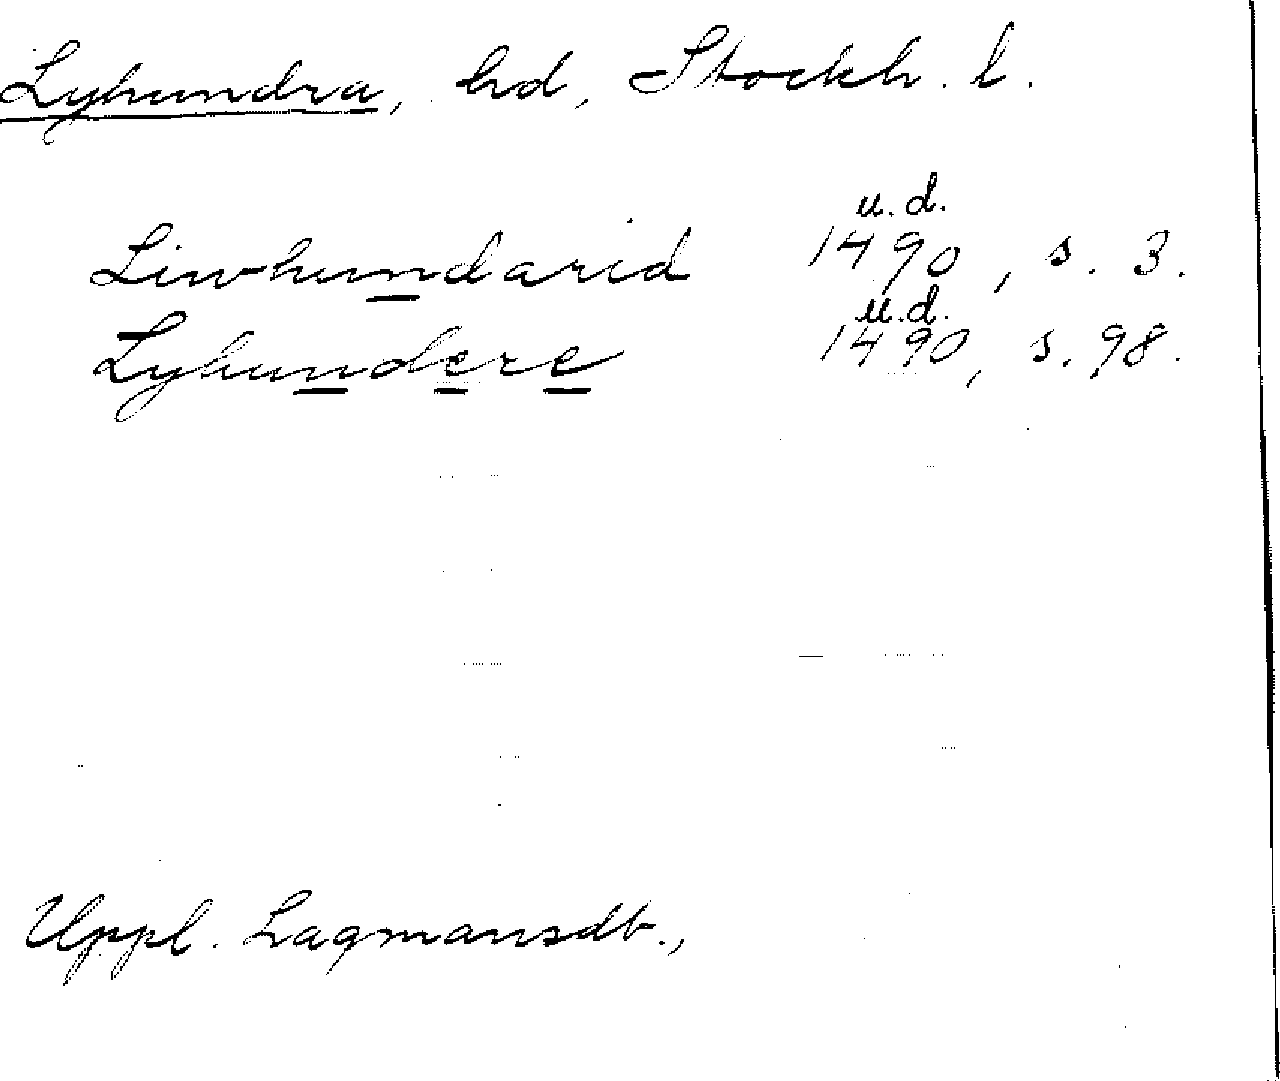 Lyhundra, hd, Stockh. l.
u. d.
Liwhundarid 1490, s. 3.
u. d.
Lyhundere 1490, s. 98.
Uppl. Lagmansdb.,